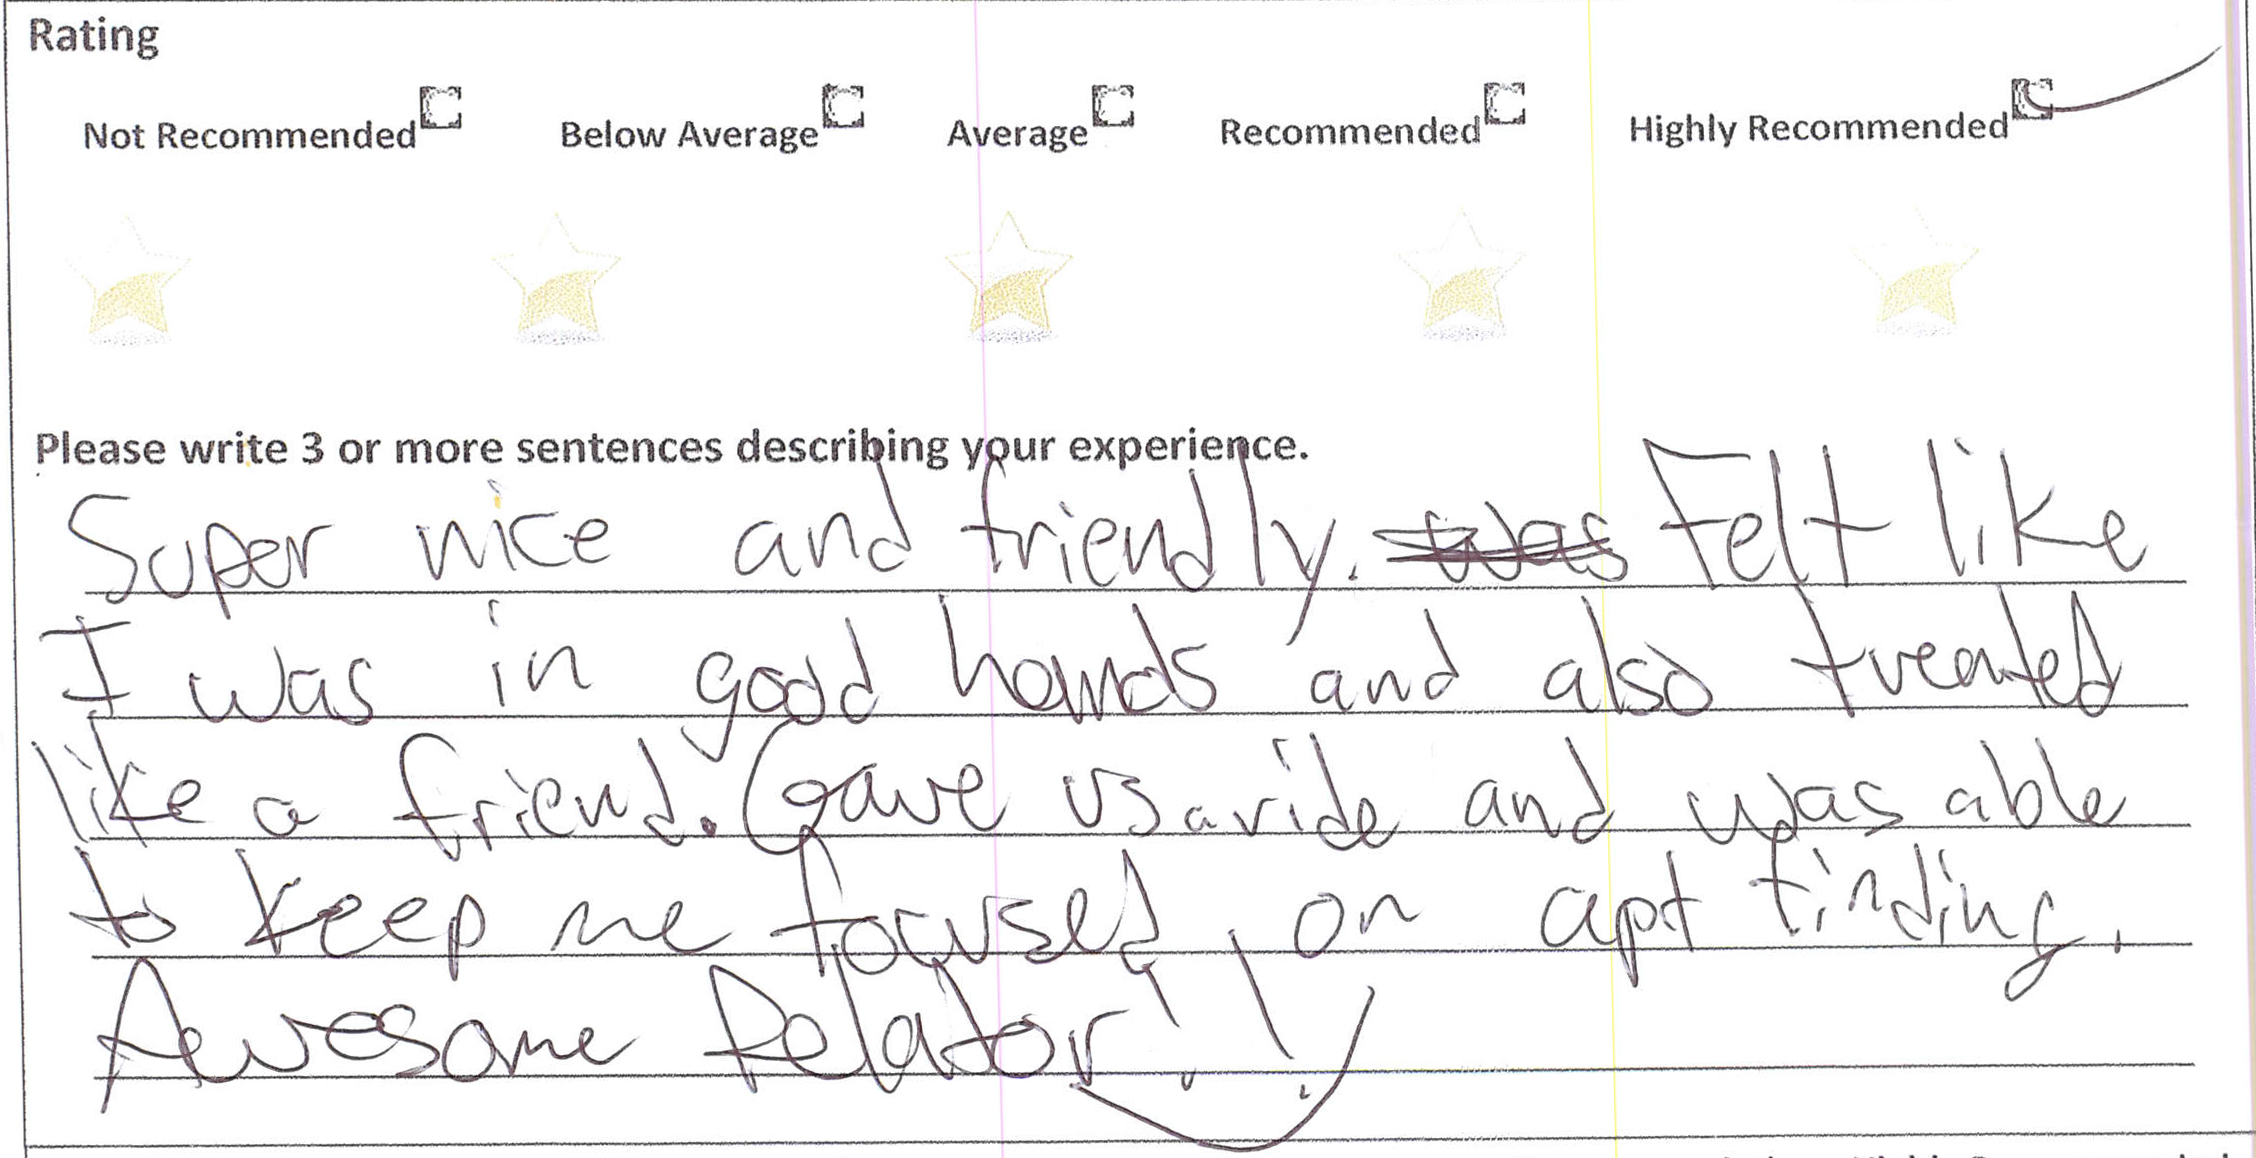 Rating
Not Recommended Below Average Average Recommended Highly Recommended
Please write 3 or more sentences describing your experience.
Super nice and friendly. was Felt like
I was in good hands and also treated
like a friend. Gave us a ride and was able
to keep me focused on apt finding.
Awesome Relator!!